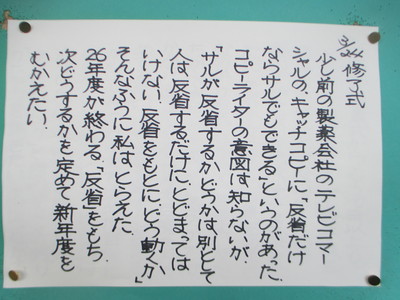 3/24 修了式
少し前の製薬会社のテレビコマー
シャルの、キャッチコピーに「反省だけ
ならサルでもできる」というのがあった。
コピーライターの意図は知らないが、
「サルが反省するかどうかは別として
人は反省するだけにとどまっては
いけない。反省をもとにどう動くか」
そんなふうに私はとらえた。
26年度が終わる。「反省をもち、
次どうするかを定めて新年度を
むかえたい。